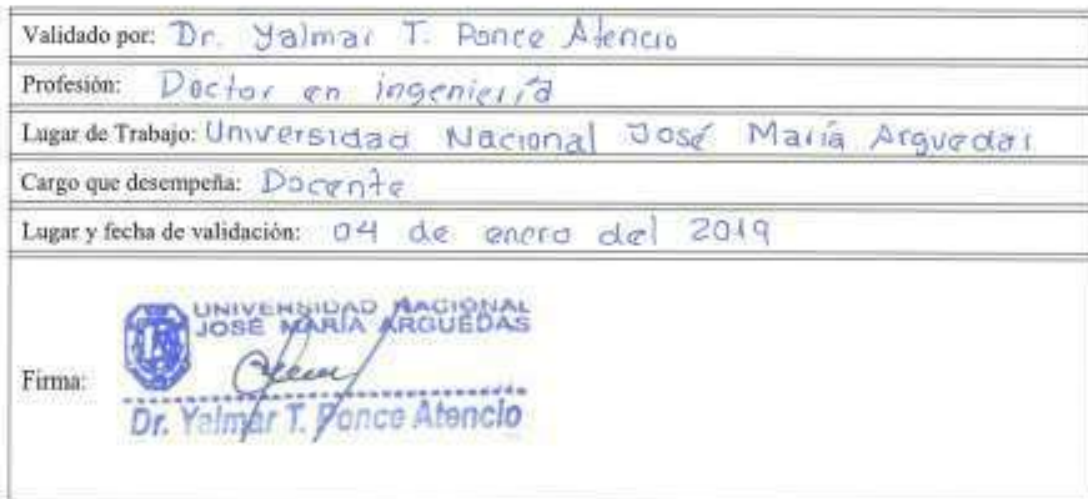 Validado por: Dr. Yalmar T. Ponce Atencio
Profesión: Doctor en ingeniería
Lugar de Trabajo: Universidad Nacional José María Arguedas
Cargo que desempeña: Docente
Lugar y fecha de validación: 04 de enero del 2019
UNIVERSIDAD NACIONAL
JOSÉ MARÍA ARGUEDAS
Firma:
Dr. Yalmar T. Ponce Atencio